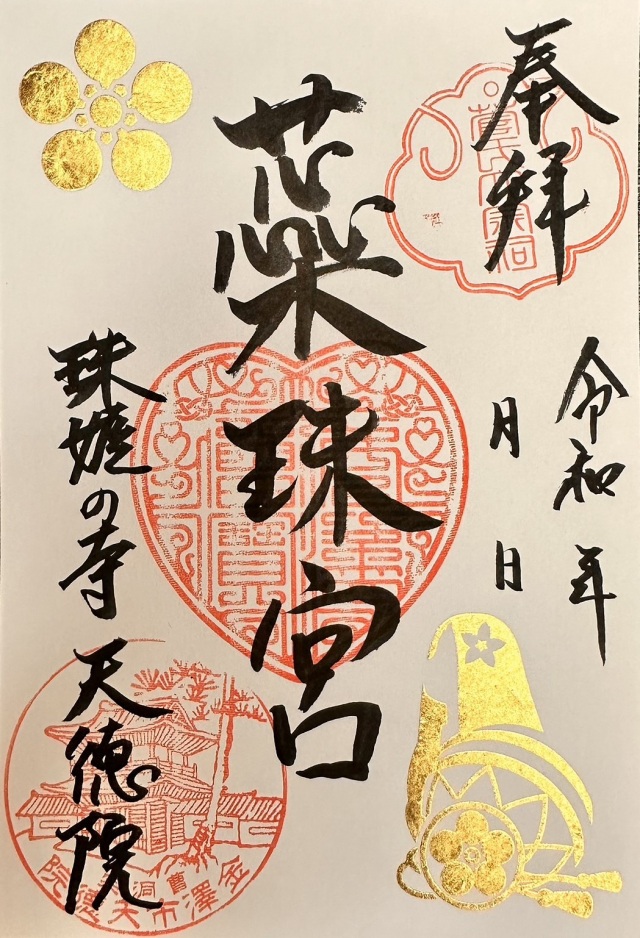 奉拝
令和 年
月 日
蘂珠宮
珠姫の寺 天徳院
金澤市 曹洞 天徳院